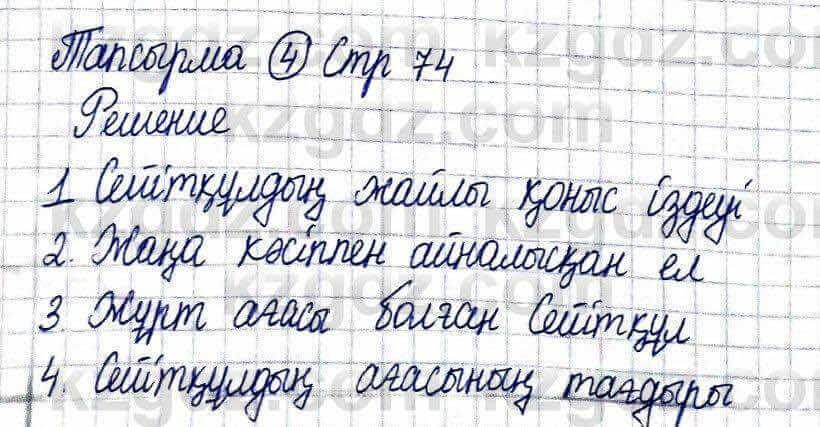 Тапсырма 4 Стр 74
Решение
1 Сейітқұлдың жайлы қоныс іздеуі
2. Жаңа кәсіппен айналысқан ел
3 Жұрт ағасы болған Сейітқұл
4. Сейітқұлдың ағасының тағдыры